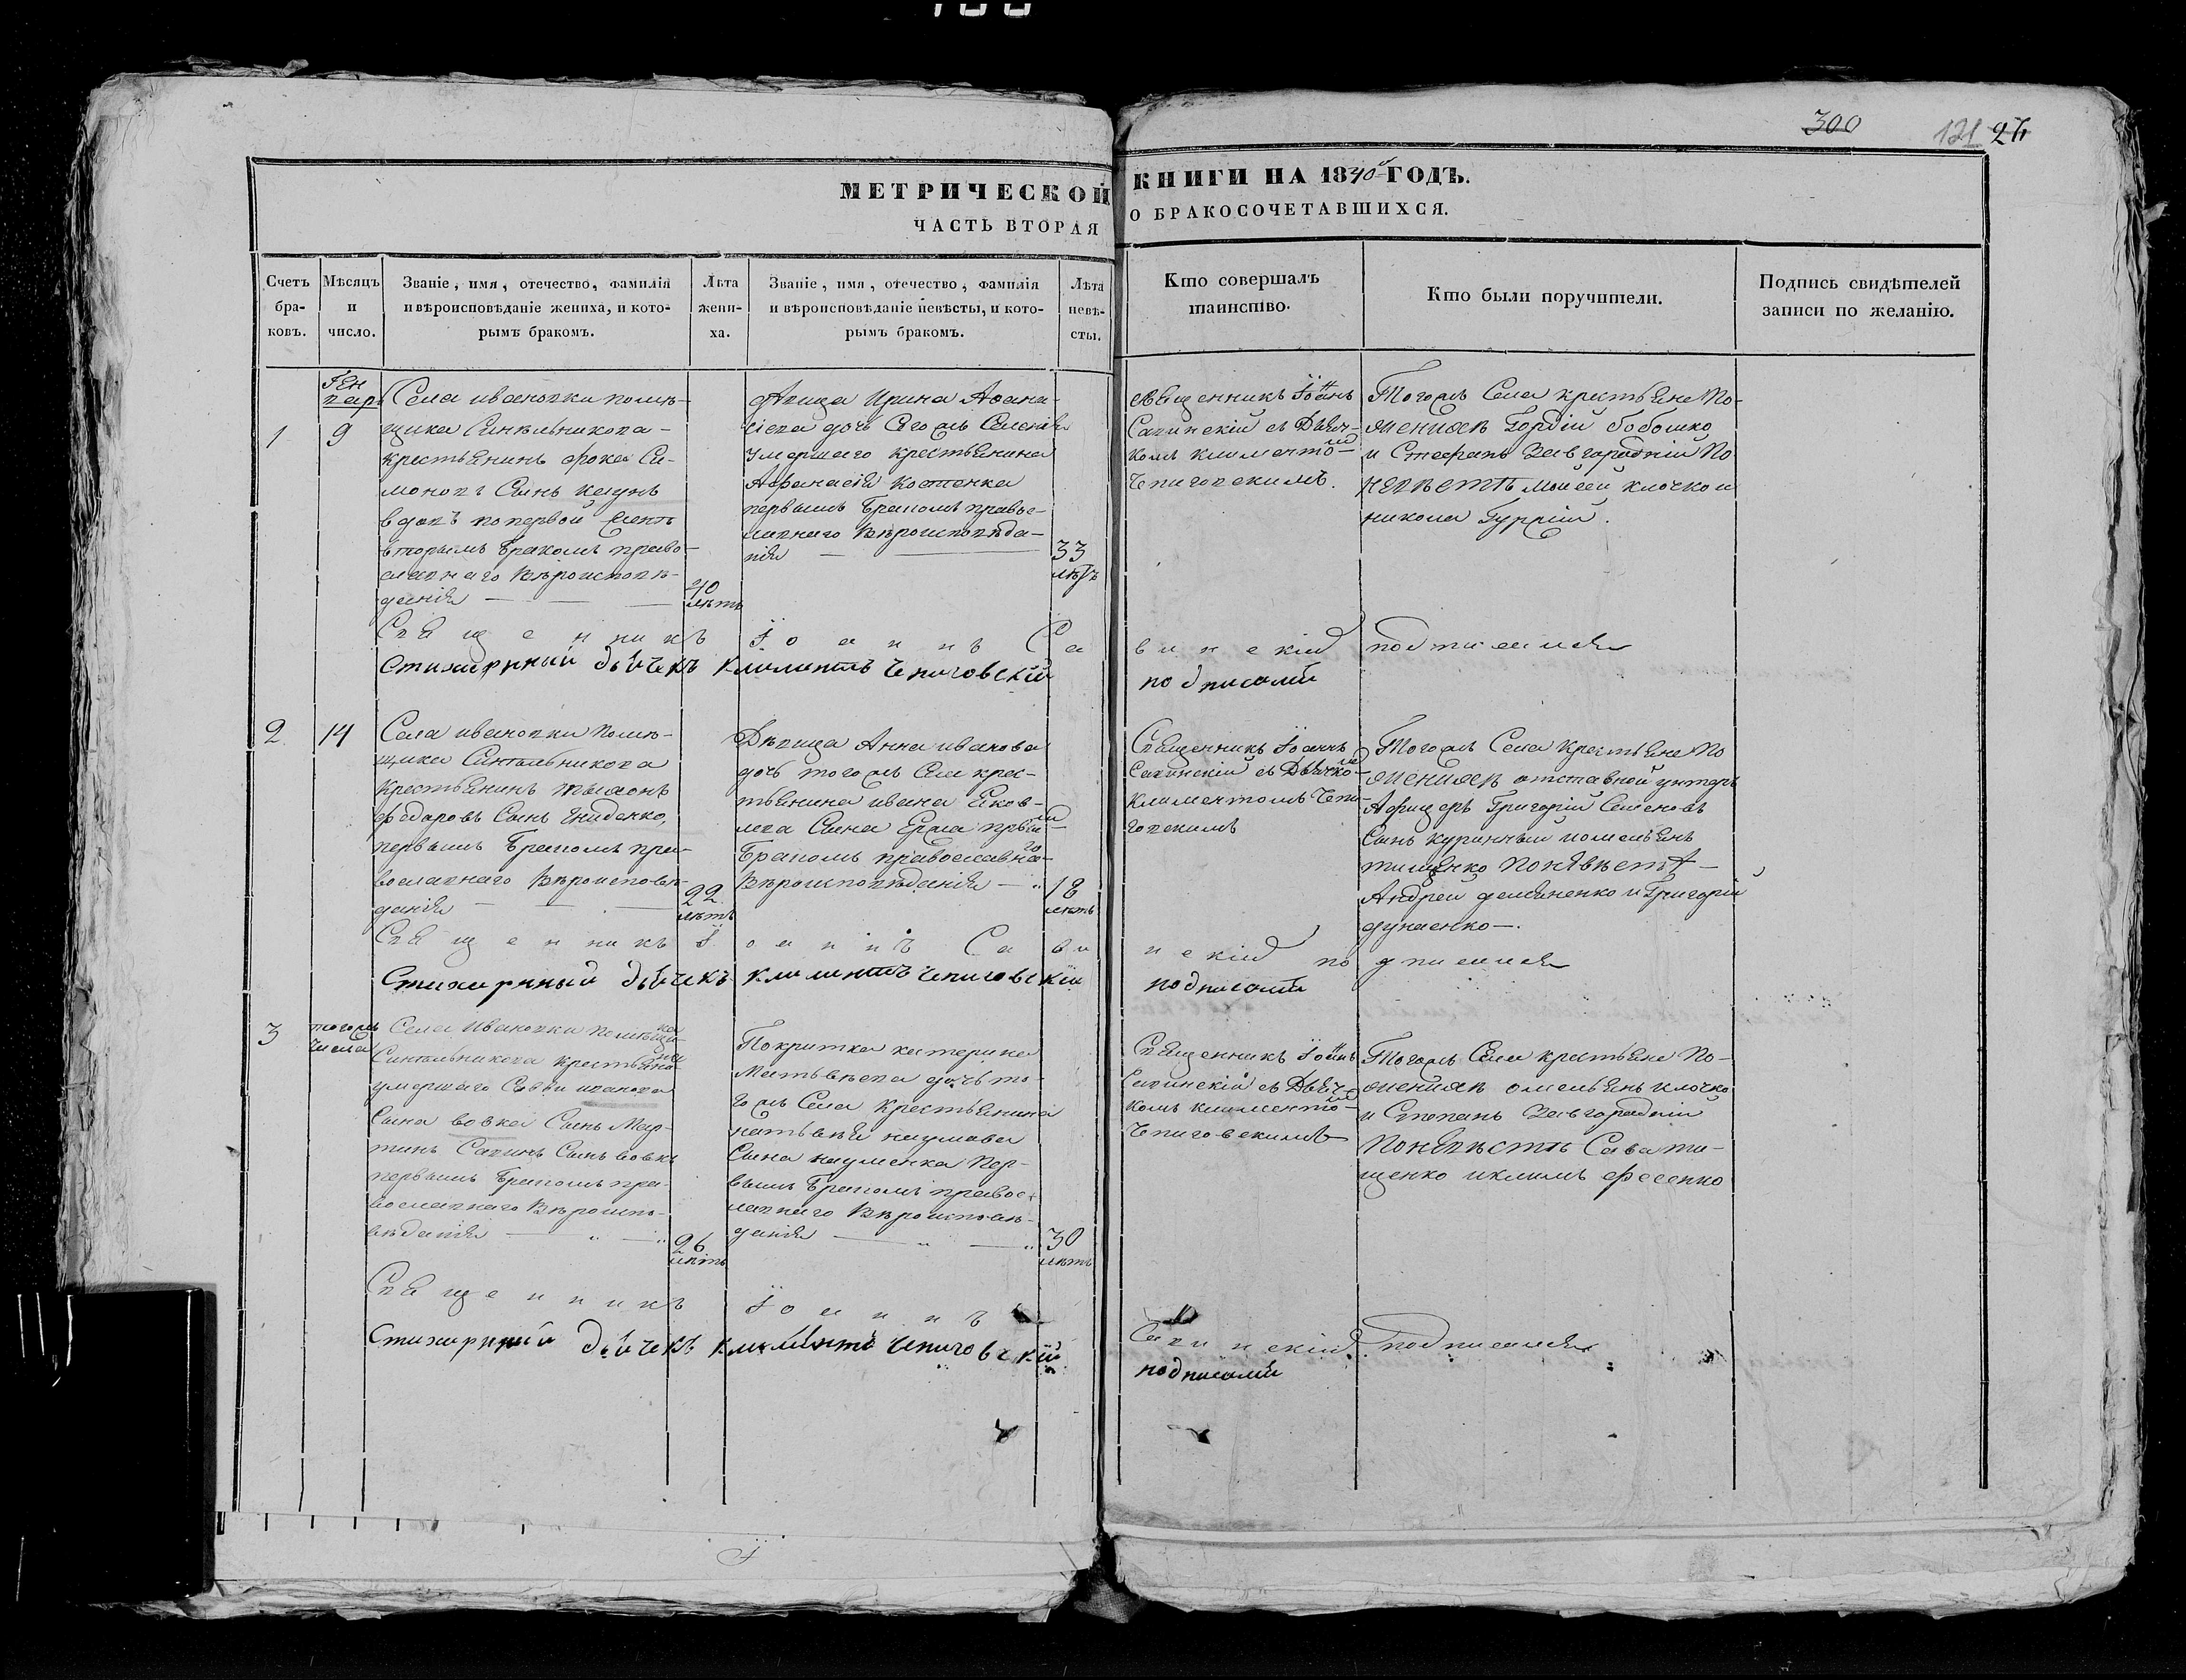 300
121 24
МЕТРИЧЕСКОЙ КНИГИ НА 1840й ГОДЪ.
ЧАСТЬ ВТОРАЯ О БРАКОСОЧЕТАВШИХСЯ.
Счетъ
бра-
ковъ.
Мѣсяцъ
и
число.
Званіе, имя, отечество, фамилія
и вѣроисповѣданіе жениха, и кото-
рымъ бракомъ.
Лѣта
жени-
ха.
Званіе, имя, отечество, фамилія
и вѣроисповѣданіе невѣсты, и кото-
рымъ бракомъ.
Лѣта
невѣ-
сты.
Кто совершалъ
таинство.
Кто были поручители.
Подпись свидѣтелей
записи по желанію.
1
Ген
вар
9
Села ивановки помѣ-
щика Синельникова
крестьянинъ фока Си-
моновъ Сынъ
вдовъ по первой женѣ
вторымъ бракомъ право-
славнаго вѣроисповѣ-
данія
40
лѣтъ
дѣвица Ирина Афана-
сіева дочь тогожъ Селенія
умершаго крестьянина
Афанасія Костенка
первымъ бракомъ правос-
лавнаго вѣроисповѣда-
нія
33
лѣтъ
священникъ Іоаннъ
Савинскій съ Дьяч-
комъ климентомъ
Чепиговскимъ.
Тогожъ Села крестьяне По
женихѣ Гордій бобошко
и Стефанъ Завгородній По
невѣстѣ моисей клочко и
никола Гуррій.
Священникъ Іоаннъ Савинскій подписался
Стихарный дьячекъ климентъ чепиговскій подписалъ
2
14
Села ивановки помѣ-
щика Синельникова
крестьянинъ тихонъ
федоровъ Сынъ Гниденко,
первымъ бракомъ пра-
вославнаго вѣроисповѣ-
данія
22
лѣтъ
Дѣвица Анна иванова
дочь тогожъ Села крес-
тьянина ивана Яков-
лева Сына первымъ
бракомъ православнаго
вѣроисповѣданія
18
лѣтъ
Священникъ Іоаннъ
Савинскій съ Дьячкомъ
климентомъ Чепи-
говскимъ
Тогожъ Села крестьяне По
женихѣ отставной унтеръ
Афицеръ Григорій Семеновъ
Сынъ куринный и омельянъ
тищенко По невѣстѣ
Андрей демяненко и Григорій
дунаенко.
Священникъ Іоаннъ Савинскій подписался
Стихарный дьячекъ климентъ чепиговскій подписалъ
3
тогожъ
числа
Села Ивановки помѣщика
Синельникова крестьянина
умершаго Саввы иванова
Сына вовка Сынъ Мар-
тинъ Савинъ Сынъ вовкъ
первымъ бракомъ пра-
вославнаго вѣроиспо-
вѣданія
26
лѣтъ
Покритка катерина
Матвѣева дочь то-
гожъ Села крестьянина
матвѣя наумова
Сына науменка пер-
вымъ бракомъ правос-
лавнаго вѣроисповѣ-
данія
30
лѣтъ
Священникъ Іоаннъ
Савинскій съ Дьяч-
комъ климентомъ
Чепиговскимъ
Тогожъ Села крестьяне По-
женихѣ омельянъ клочко
и Степанъ Завгородній
По невѣстѣ Сава ти-
щенко и климъ фесенко
Священникъ Іоаннъ Савинскій подписался
Стихарный дьячекъ климентъ чепиговскій подписалъ